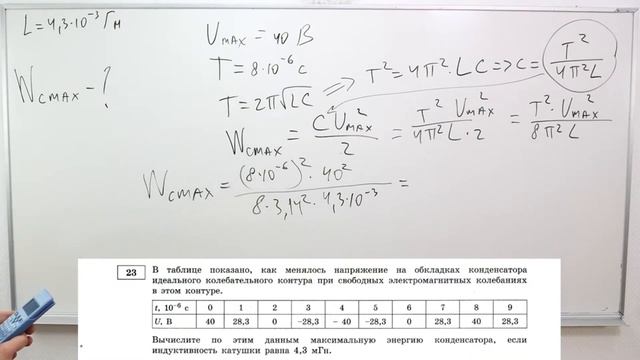 L = 4,3·10⁻³ Гн
Wcmax - ?
Umax = 40 В
T = 8·10⁻⁶ с
T = 2π√LC => T² = 4π²·LC => C = T²/4π²L
Wcmax = CUmax²/2 = T² Umax²/4π²L·2 = T²·Umax²/8π²L
Wcmax = (8·10⁻⁶)²·40²/8·3,14²·4,3·10⁻³ =
23 В таблице показано, как менялось напряжение на обкладках конденсатора
идеального колебательного контура при свободных электромагнитных колебаниях
в этом контуре.
t, 10⁻⁶ с 0 1 2 3 4 5 6 7 8 9
U, В 40 28,3 0 –28,3 – 40 –28,3 0 28,3 40 28,3
Вычислите по этим данным максимальную энергию конденсатора, если
индуктивность катушки равна 4,3 мГн.